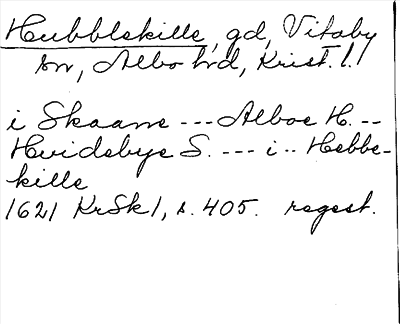 Hubblekille, gd, Vitaby
sn, Albo hd, Krist. l.
i Skaane --- Alboe H. --
Hvidebye S. --- i -- Hebbe-
kille
1621 KrSk 1, s. 405. regest.